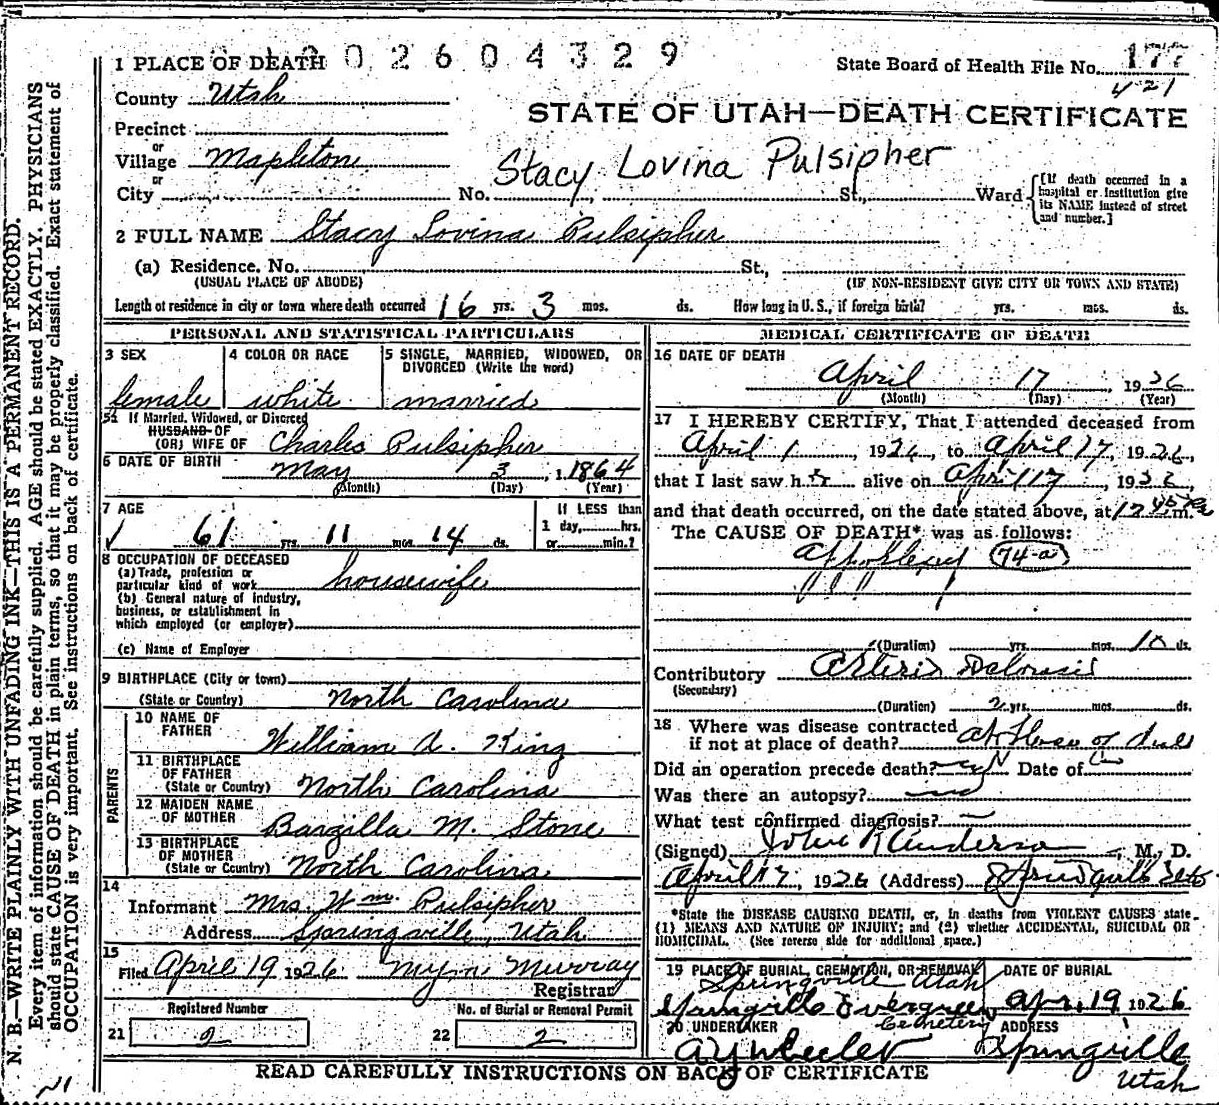 002604329
1 PLACE OF DEATH
State Board of Health File No. 177
421
County Utah
STATE OF UTAH—DEATH CERTIFICATE
Precinct
or
Village Mapleton
or
Stacy Lovina Pulsipher
City No. St., Ward
[If death occurred in a hospital or institution give its NAME instead of street and number.]
2 FULL NAME Stacy Lovina Pulsipher
(a) Residence. No. St.,
(USUAL PLACE OF ABODE) (IF NON-RESIDENT GIVE CITY OR TOWN AND STATE)
Length of residence in city or town where death occurred 16 yrs. 3 mos. ds. How long in U. S., if foreign birth? yrs. mos. ds.
PERSONAL AND STATISTICAL PARTICULARS
3 SEX
female
4 COLOR OR RACE
white
5 SINGLE, MARRIED, WIDOWED, OR
DIVORCED (Write the word)
married
5a If Married, Widowed, or Divorced
HUSBAND OF
(OR) WIFE OF Charles Pulsipher
6 DATE OF BIRTH May 3, 1864
(Month) (Day) (Year)
7 AGE
61 yrs. 11 mos. 14 ds.
If LESS than
1 day, hrs.
or min.?
8 OCCUPATION OF DECEASED
(a) Trade, profession or
particular kind of work housewife
(b) General nature of industry,
business, or establishment in
which employed (or employer)
(c) Name of Employer
9 BIRTHPLACE (City or town)
(State or Country) North Carolina
PARENTS
10 NAME OF
FATHER William A. King
11 BIRTHPLACE
OF FATHER
(State or Country) North Carolina
12 MAIDEN NAME
OF MOTHER Bargilla M. Stone
13 BIRTHPLACE
OF MOTHER
(State or Country) North Carolina
14
Informant Mrs. Wm. Pulsipher
Address Springville, Utah
15
Filed April 19 1926 Murray
Registrar
Registered Number
21 2
No. of Burial or Removal Permit
22 2
MEDICAL CERTIFICATE OF DEATH
16 DATE OF DEATH
April 17, 1926
(Month) (Day) (Year)
17 I HEREBY CERTIFY, That I attended deceased from
April 1, 1926, to April 17, 1926,
that I last saw her alive on April 17, 1926
and that death occurred, on the date stated above, at 12 45 P m.
The CAUSE OF DEATH* was as follows:
Appoplexy 74-a
(Duration) yrs. mos. 10 ds.
Contributory
(Secondary)
(Duration) 2 yrs. mos. ds.
18 Where was disease contracted
if not at place of death? at
Did an operation precede death? Date of
Was there an autopsy? no
What test confirmed diagnosis?
(Signed) John R Anderson, M. D.
April 17, 1926 (Address) Springville
*State the DISEASE CAUSING DEATH, or, in deaths from VIOLENT CAUSES state
(1) MEANS AND NATURE OF INJURY; and (2) whether ACCIDENTAL, SUICIDAL OR
HOMICIDAL. (See reverse side for additional space.)
19 PLACE OF BURIAL, CREMATION, OR REMOVAL
Springville Utah
Springville Evergreen
Cemetery
DATE OF BURIAL
Apr. 19 1926
20 UNDERTAKER
A Y Wheeler
ADDRESS
Springville
Utah
READ CAREFULLY INSTRUCTIONS ON BACK OF CERTIFICATE
N. B.—WRITE PLAINLY WITH UNFADING INK—THIS IS A PERMANENT RECORD.
Every item of information should be carefully supplied. AGE should be stated EXACTLY. PHYSICIANS
should state CAUSE OF DEATH in plain terms, so that it may be properly classified. Exact statement of
OCCUPATION is very important. See instructions on back of certificate.